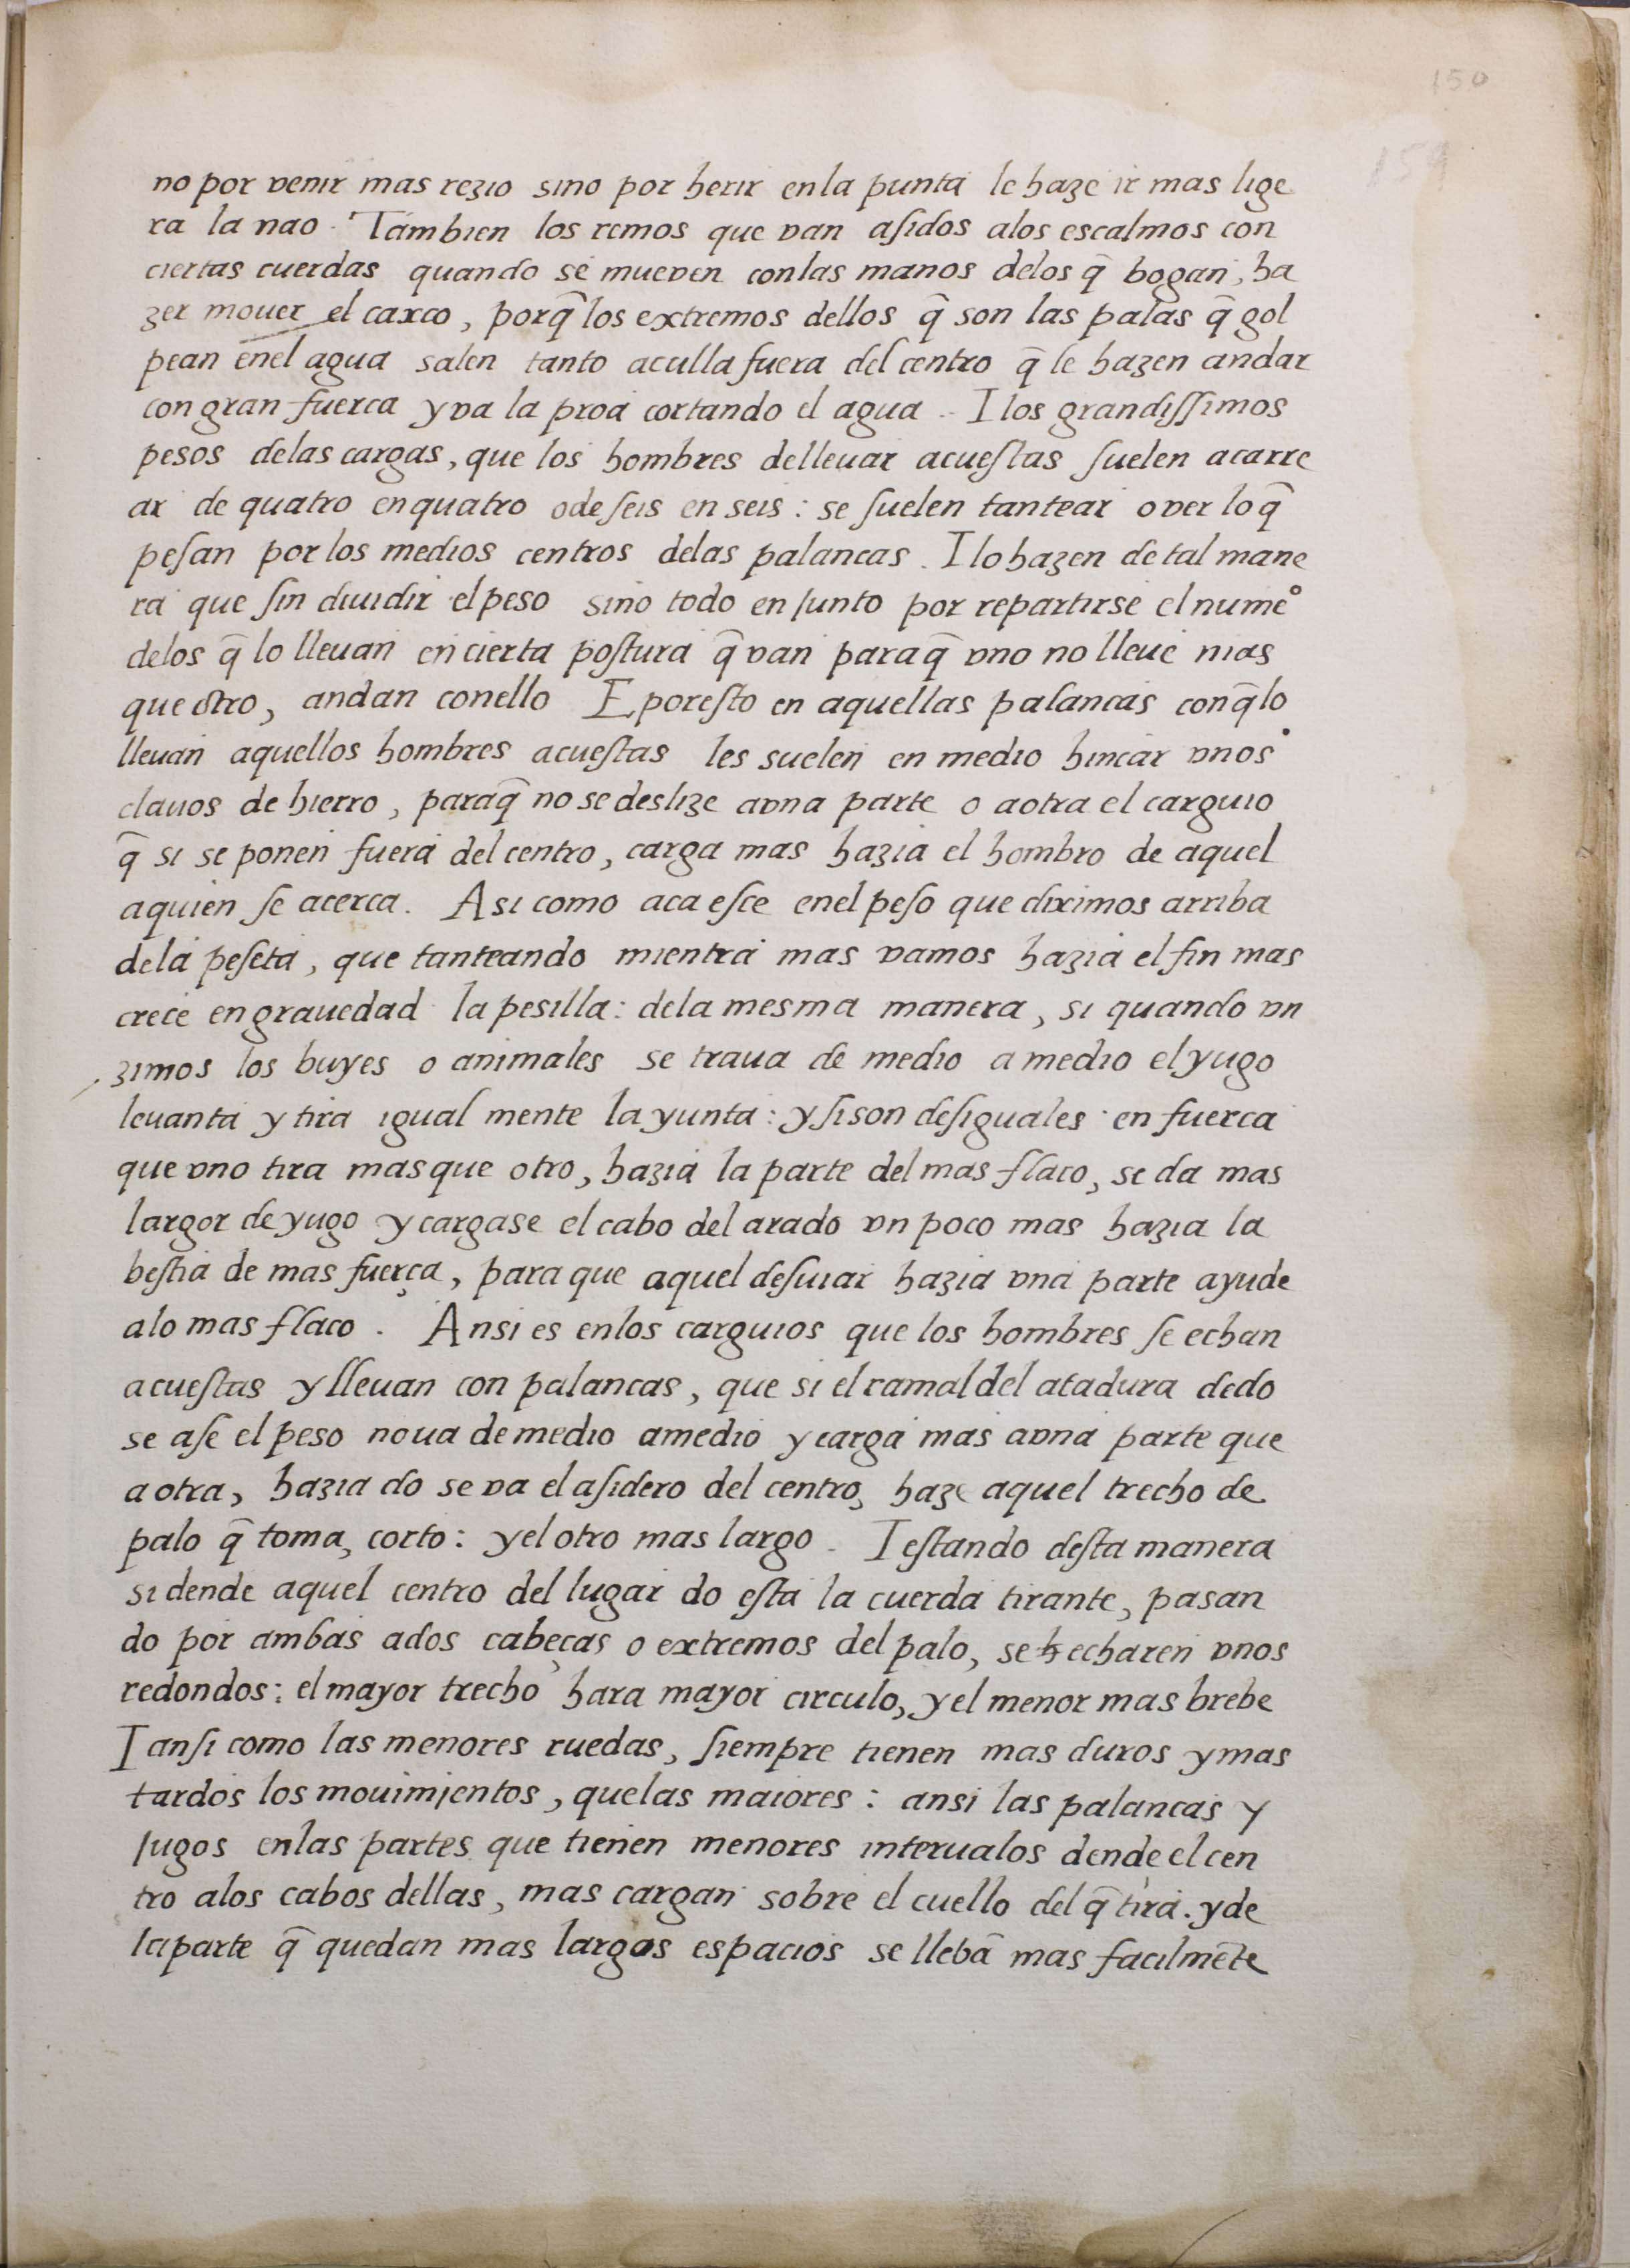 150
151
no por venir mas rezio sino por herir enla punta le haze ir mas lige
ra la nao. Tambien los remos que van asidos alos escalmos con
ciertas cuerdas quando se mueven conlas manos delos q̃ bogan, ha
zer mouer el caxco, porq̃ los extremos dellos q̃ son las palas q̃ gol
pean enel agua salen tanto aculla fuera del centro q̃ le hazen andar
con gran fuerca y va la proa cortando el agua. I los grandissimos
pesos delas cargas, que los hombres delleuar acuestas suelen acarre
ar de quatro en quatro o de seis en seis: se suelen tantear o ver lo q̃
pesan por los medios centros delas palancas. I lo hazen de tal mane
ra que sin diuidir el peso sino todo en junto por repartirse el nume°
delos q̃ lo lleuan en cierta postura q̃ van paraq̃ vno no lleue mas
que otro, andan conello E poresto en aquellas palancas conq̃ lo
lleuan aquellos hombres acuestas les suelen en medio hincar vnos
clauos de hierro, paraq̃ no se deslize avna parte o aotra el carguio
q̃ si se ponen fuera del centro, carga mas hazia el hombro de aquel
aquien se acerca. Asi como aca esce enel peso que diximos arriba
dela peseta, que tanteando mientra mas vamos hazia el fin mas
crece en grauedad la pesilla: dela mesma manera, si quando vn
zimos los buyes o animales se traua de medio a medio el yugo
leuanta y tira igual mente la yunta: y si son desiguales en fuerca
que vno tira mas que otro, hazia la parte del mas flaco, se da mas
largor de yugo y cargase el cabo del arado vn poco mas hazia la
bestia de mas fuerça, para que aquel desuiar hazia vna parte ayude
alo mas flaco. Ansi es enlos carguios que los hombres se echan
acuestas y lleuan con palancas, que si el ramal del atadura dedo
se ase el peso no ua de medio amedio y carga mas avna parte que
a otra, hazia do se va el asidero del centro, haze aquel trecho de
palo q̃ toma, corto: y el otro mas largo. I estando desta manera
si dende aquel centro del lugar do esta la cuerda tirante, pasan
do por ambas ados cabeças o extremos del palo, se echaren vnos
redondos: el mayor trecho hara mayor circulo, y el menor mas brebe
I ansi como las menores ruedas, siempre tienen mas duros y mas
tardos los mouimjentos, quelas maiores: ansi las palancas y
jugos enlas partes que tienen menores interualos dende el cen
tro alos cabos dellas, mas cargan sobre el cuello del q̃ tira. y de
la parte q̃ quedan mas largos espacios se llebã mas facilmẽte